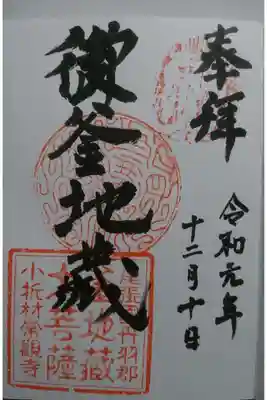 奉拝
徴釜地蔵
令和元年
十二月十日
尾張国丹羽郡
釜地蔵
大菩薩
小折村常観寺